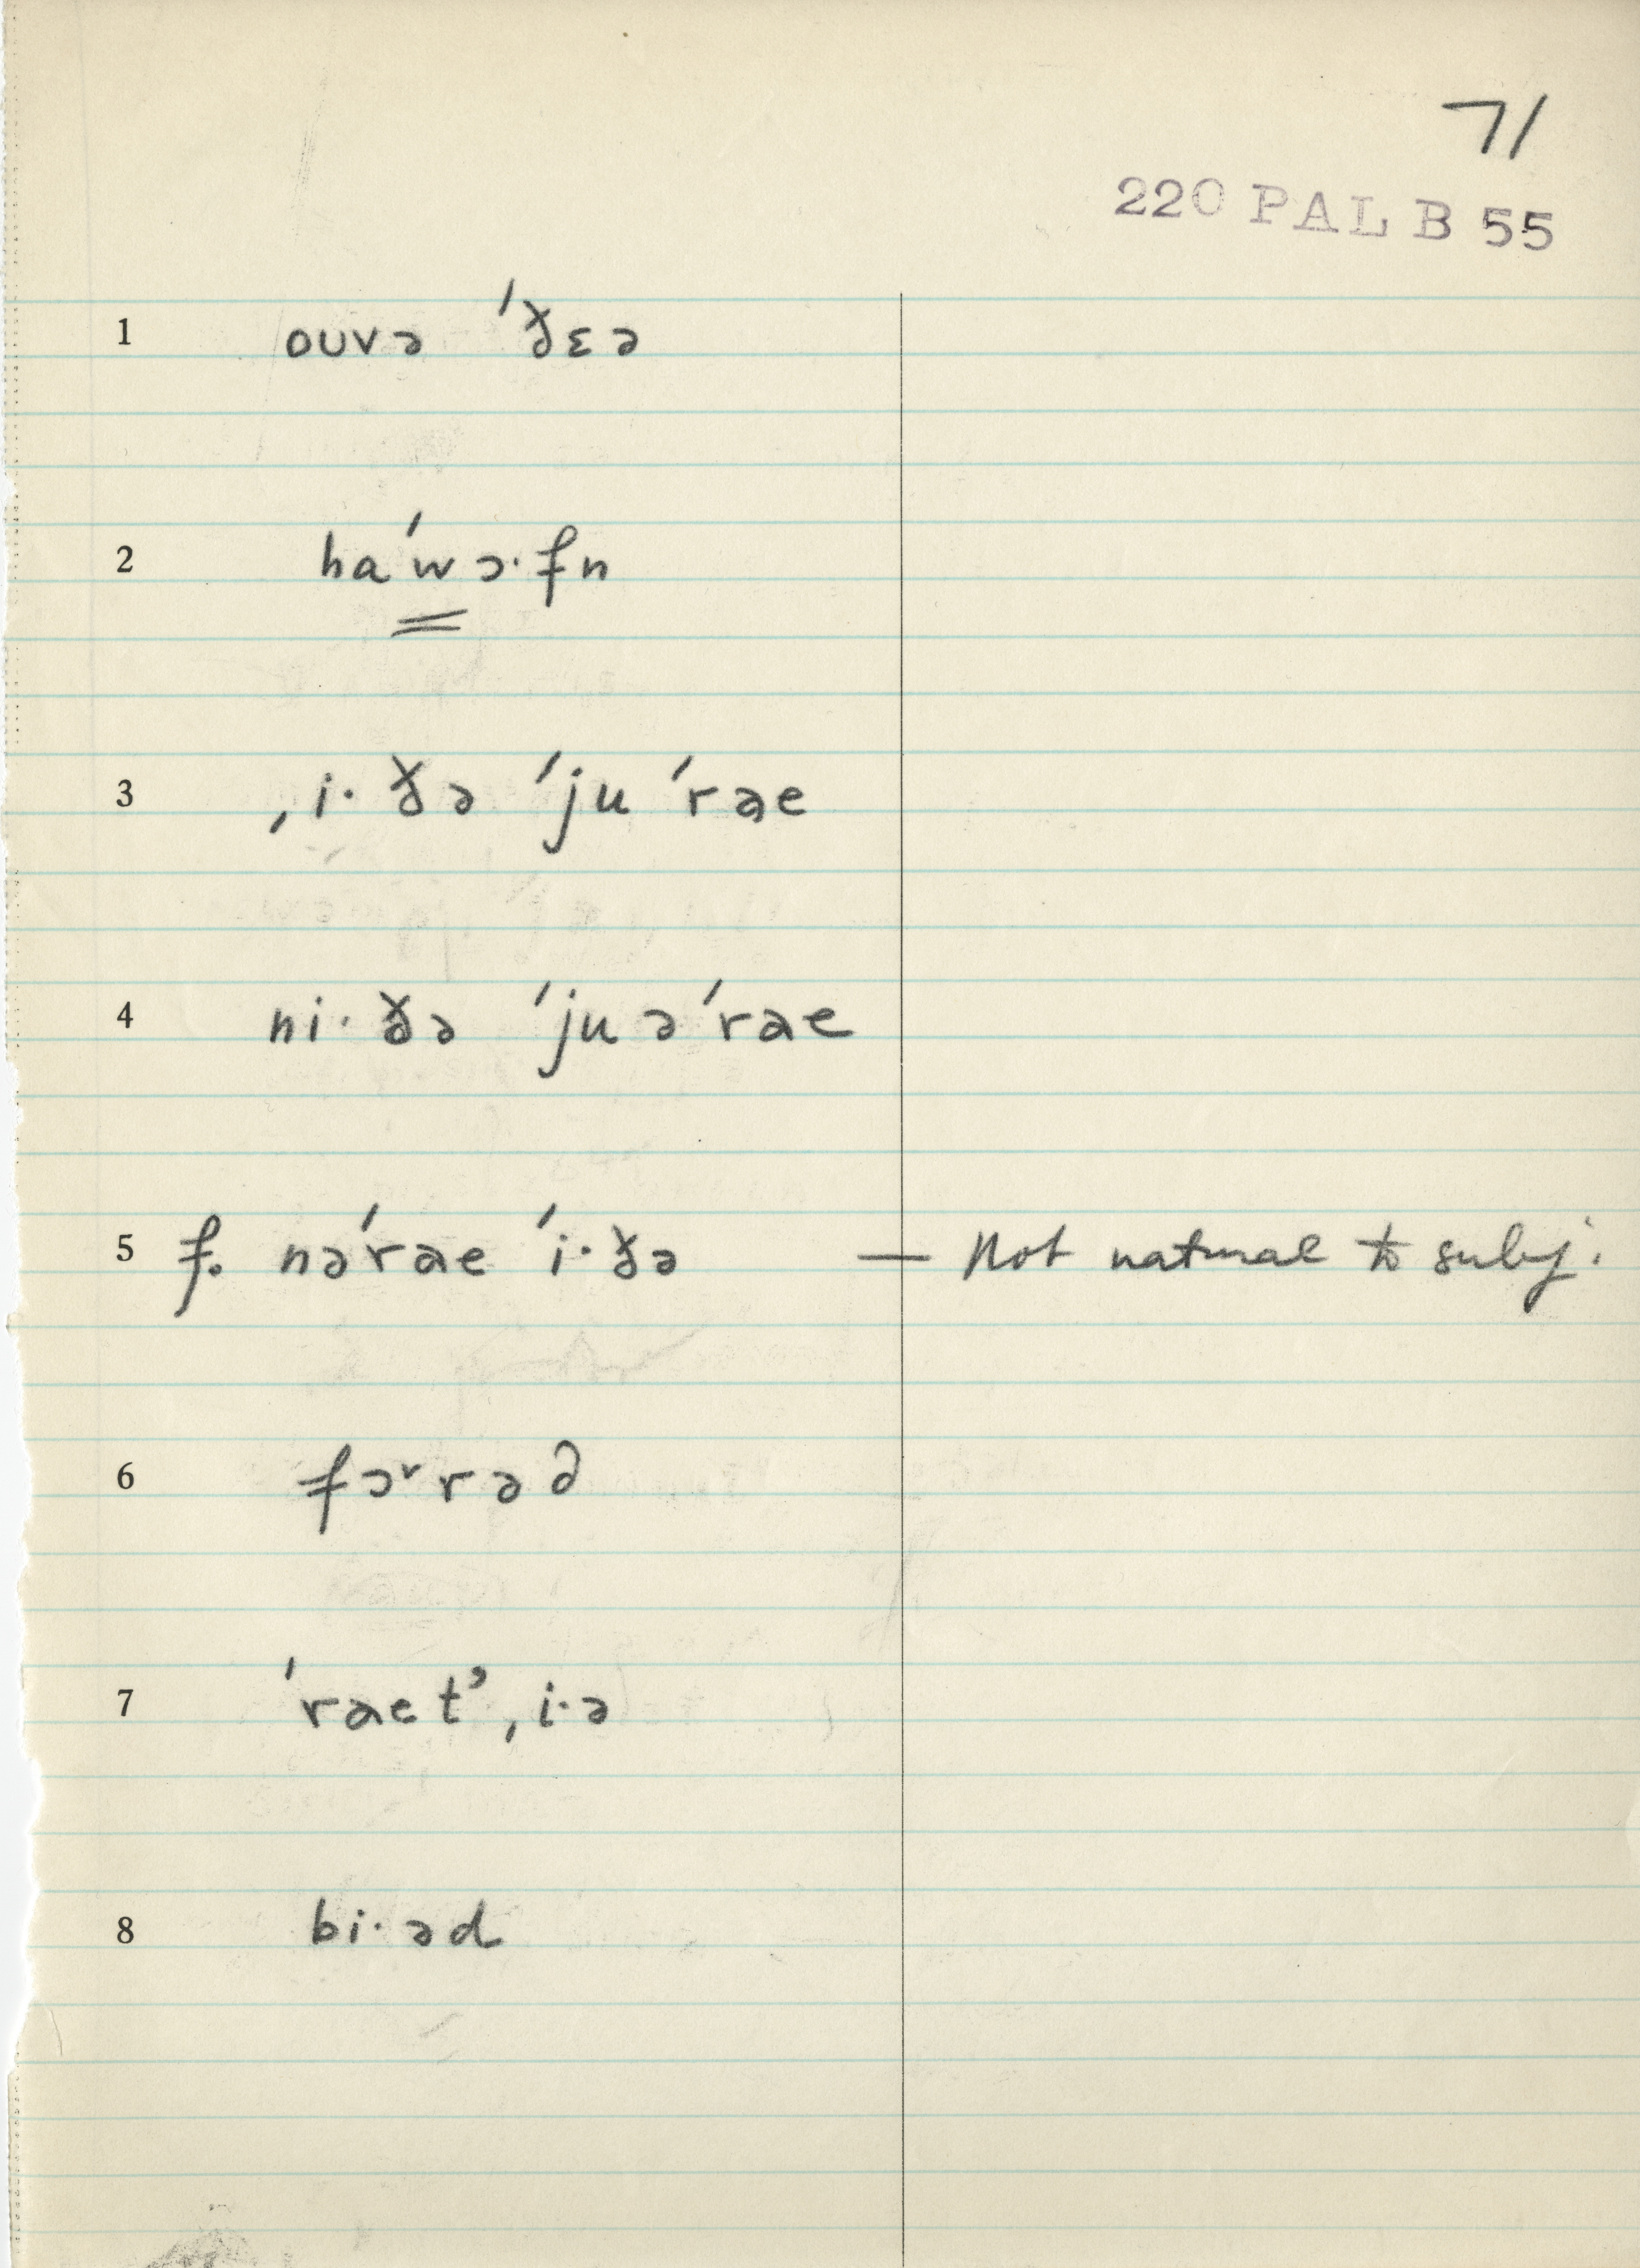 71
220 PAL B 55
1 oʊvə ˈðɛə
2 haˈwɔ·fn
3 ˌi·ðə ˈju ˈrae
4 ni·ðə ˈju əˈrae
5 f. nəˈrae ˈi·ðə — Not natural to subj.
6 fɔʳrəd
7 ˈraetʾˌi·ə
8 bi·əd